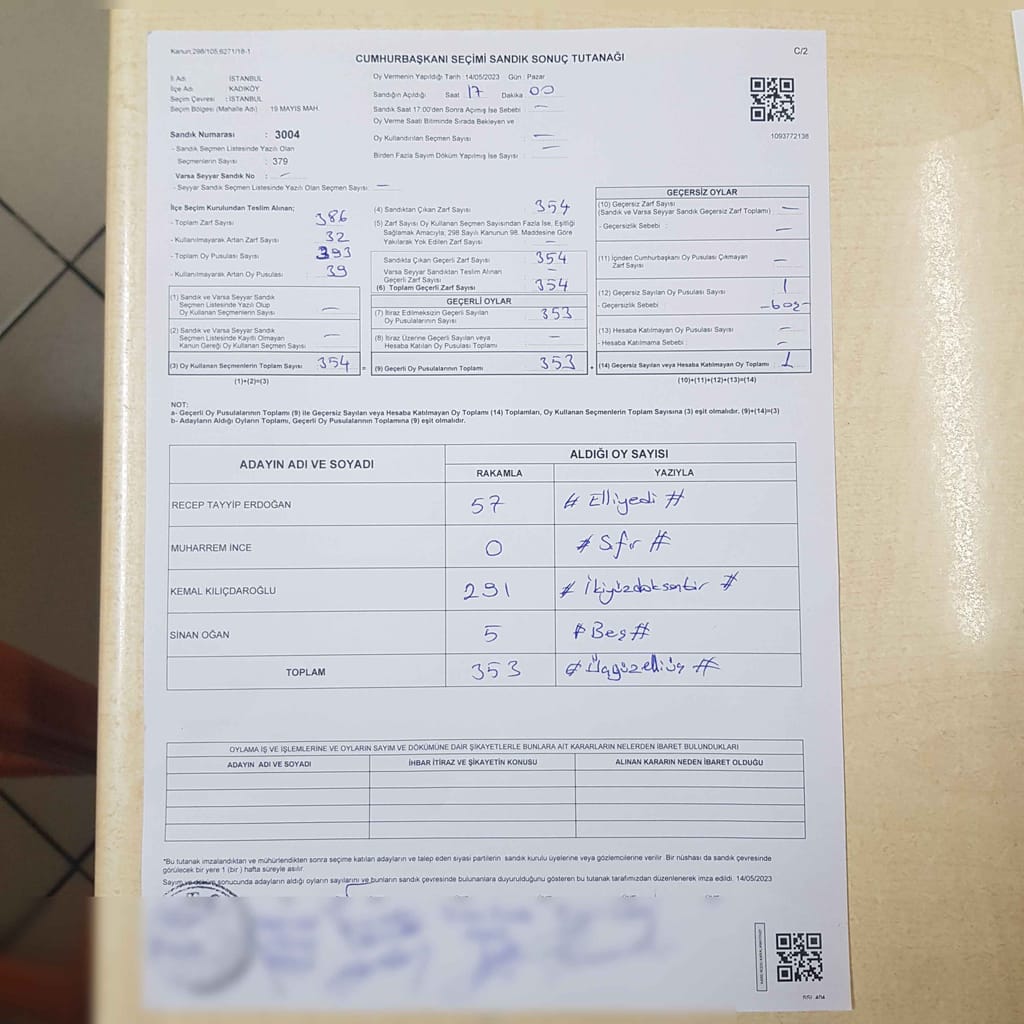 Kanun:298/105,6271/18-1
C/2
CUMHURBAŞKANI SEÇİMİ SANDIK SONUÇ TUTANAĞI
İl Adı : İSTANBUL
İlçe Adı : KADIKÖY
Seçim Çevresi : İSTANBUL
Seçim Bölgesi (Mahalle Adı) : 19 MAYIS MAH.
Sandık Numarası : 3004
- Sandık Seçmen Listesinde Yazılı Olan
Seçmenlerin Sayısı : 379
Varsa Seyyar Sandık No : –
- Seyyar Sandık Seçmen Listesinde Yazılı Olan Seçmen Sayısı : –
Oy Vermenin Yapıldığı Tarih : 14/05/2023 Gün : Pazar
Sandığın Açıldığı : Saat 17 Dakika 00
Sandık Saat 17:00'den Sonra Açılmış İse Sebebi : –
Oy Verme Saati Bitiminde Sırada Bekleyen ve
Oy Kullandırılan Seçmen Sayısı : –
Birden Fazla Sayım Döküm Yapılmış İse Sayısı : –
1093772138
İlçe Seçim Kurulundan Teslim Alınan;
- Toplam Zarf Sayısı : 386
- Kullanılmayarak Artan Zarf Sayısı : 32
- Toplam Oy Pusulası Sayısı : 393
- Kullanılmayarak Artan Oy Pusulası : 39
(1) Sandık ve Varsa Seyyar Sandık
Seçmen Listesinde Yazılı Olup
Oy Kullanan Seçmenlerin Sayısı –
(2) Sandık ve Varsa Seyyar Sandık
Seçmen Listesinde Kayıtlı Olmayan
Kanun Gereği Oy Kullanan Seçmen Sayısı –
(3) Oy Kullanan Seçmenlerin Toplam Sayısı 354 =
(1)+(2)=(3)
(4) Sandıktan Çıkan Zarf Sayısı : 354
(5) Zarf Sayısı Oy Kullanan Seçmen Sayısından Fazla İse, Eşitliği
Sağlamak Amacıyla; 298 Sayılı Kanunun 98. Maddesine Göre
Yakılarak Yok Edilen Zarf Sayısı : –
Sandıkta Çıkan Geçerli Zarf Sayısı : 354
Varsa Seyyar Sandıktan Teslim Alınan
Geçerli Zarf Sayısı : –
(6) Toplam Geçerli Zarf Sayısı : 354
GEÇERLİ OYLAR
(7) İtiraz Edilmeksizin Geçerli Sayılan
Oy Pusulalarının Sayısı : 353
(8) İtiraz Üzerine Geçerli Sayılan veya
Hesaba Katılan Oy Pusulası Toplamı : –
(9) Geçerli Oy Pusulalarının Toplamı : 353 +
GEÇERSİZ OYLAR
(10) Geçersiz Zarf Sayısı
(Sandık ve Varsa Seyyar Sandık Geçersiz Zarf Toplamı) : –
- Geçersizlik Sebebi : –
(11) İçinden Cumhurbaşkanı Oy Pusulası Çıkmayan
Zarf Sayısı : –
(12) Geçersiz Sayılan Oy Pusulası Sayısı : 1
- Geçersizlik Sebebi : -boş-
(13) Hesaba Katılmayan Oy Pusulası Sayısı : –
- Hesaba Katılmama Sebebi : –
(14) Geçersiz Sayılan veya Hesaba Katılmayan Oy Toplamı : 1
(10)+(11)+(12)+(13)=(14)
NOT:
a- Geçerli Oy Pusulalarının Toplamı (9) ile Geçersiz Sayılan veya Hesaba Katılmayan Oy Toplamı (14) Toplamları, Oy Kullanan Seçmenlerin Toplam Sayısına (3) eşit olmalıdır. (9)+(14)=(3)
b- Adayların Aldığı Oyların Toplamı, Geçerli Oy Pusulalarının Toplamına (9) eşit olmalıdır.
ADAYIN ADI VE SOYADI
ALDIĞI OY SAYISI
RAKAMLA YAZIYLA
RECEP TAYYİP ERDOĞAN 57 # Elliyedi #
MUHARREM İNCE 0 # Sıfır #
KEMAL KILIÇDAROĞLU 291 # İkiyüzdoksanbir #
SİNAN OĞAN 5 # Beş #
TOPLAM 353 # Üçyüzelliüç #
OYLAMA İŞ VE İŞLEMLERİNE VE OYLARIN SAYIM VE DÖKÜMÜNE DAİR ŞİKAYETLERLE BUNLARA AİT KARARLARIN NELERDEN İBARET BULUNDUKLARI
ADAYIN ADI VE SOYADI İHBAR İTİRAZ VE ŞİKAYETİN KONUSU ALINAN KARARIN NEDEN İBARET OLDUĞU
*Bu tutanak imzalandıktan ve mühürlendikten sonra seçime katılan adayların ve talep eden siyasi partilerin sandık kurulu üyelerine veya gözlemcilerine verilir. Bir nüshası da sandık çevresinde
görülecek bir yere 1 (bir) hafta süreyle asılır.
Sayım ve döküm sonucunda adayların aldığı oyların sayılarını ve bunların sandık çevresinde bulunanlara duyurulduğunu gösteren bu tutanak tarafımızdan düzenlenerek imza edildi. 14/05/2023